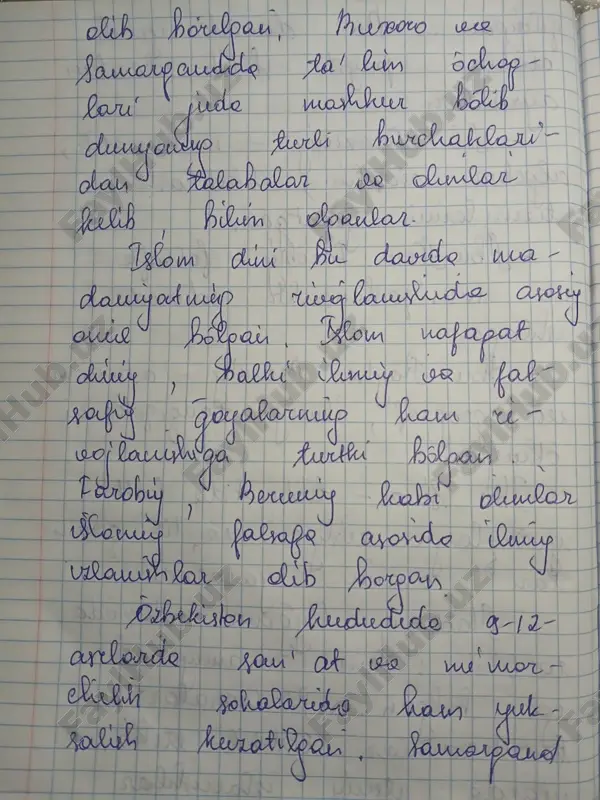 olib borilgan. Buxoro va
Samarqandda ta'lim o'choq-
lari juda mashhur bo'lib
dunyoning turli burchaklari-
dan talabalar va olimlar
kelib, bilim olganlar.
Islom dini bu davrda ma-
daniyatning rivojlanishida asosiy
omil bo'lgan. Islom nafaqat
diniy, balki ilmiy va fal-
safiy g'oyalarning ham ri-
vojlanishiga turtki bo'lgan.
Forobiy, Beruniy kabi olimlar
islomiy falsafa asosida ilmiy
izlanishlar olib borgan.
O'zbekiston hududida 9-12-
asrlarda san'at va me'mor-
chilik sohalarida ham yuk-
salish kuzatilgan. Samarqand
FayllHub.uz